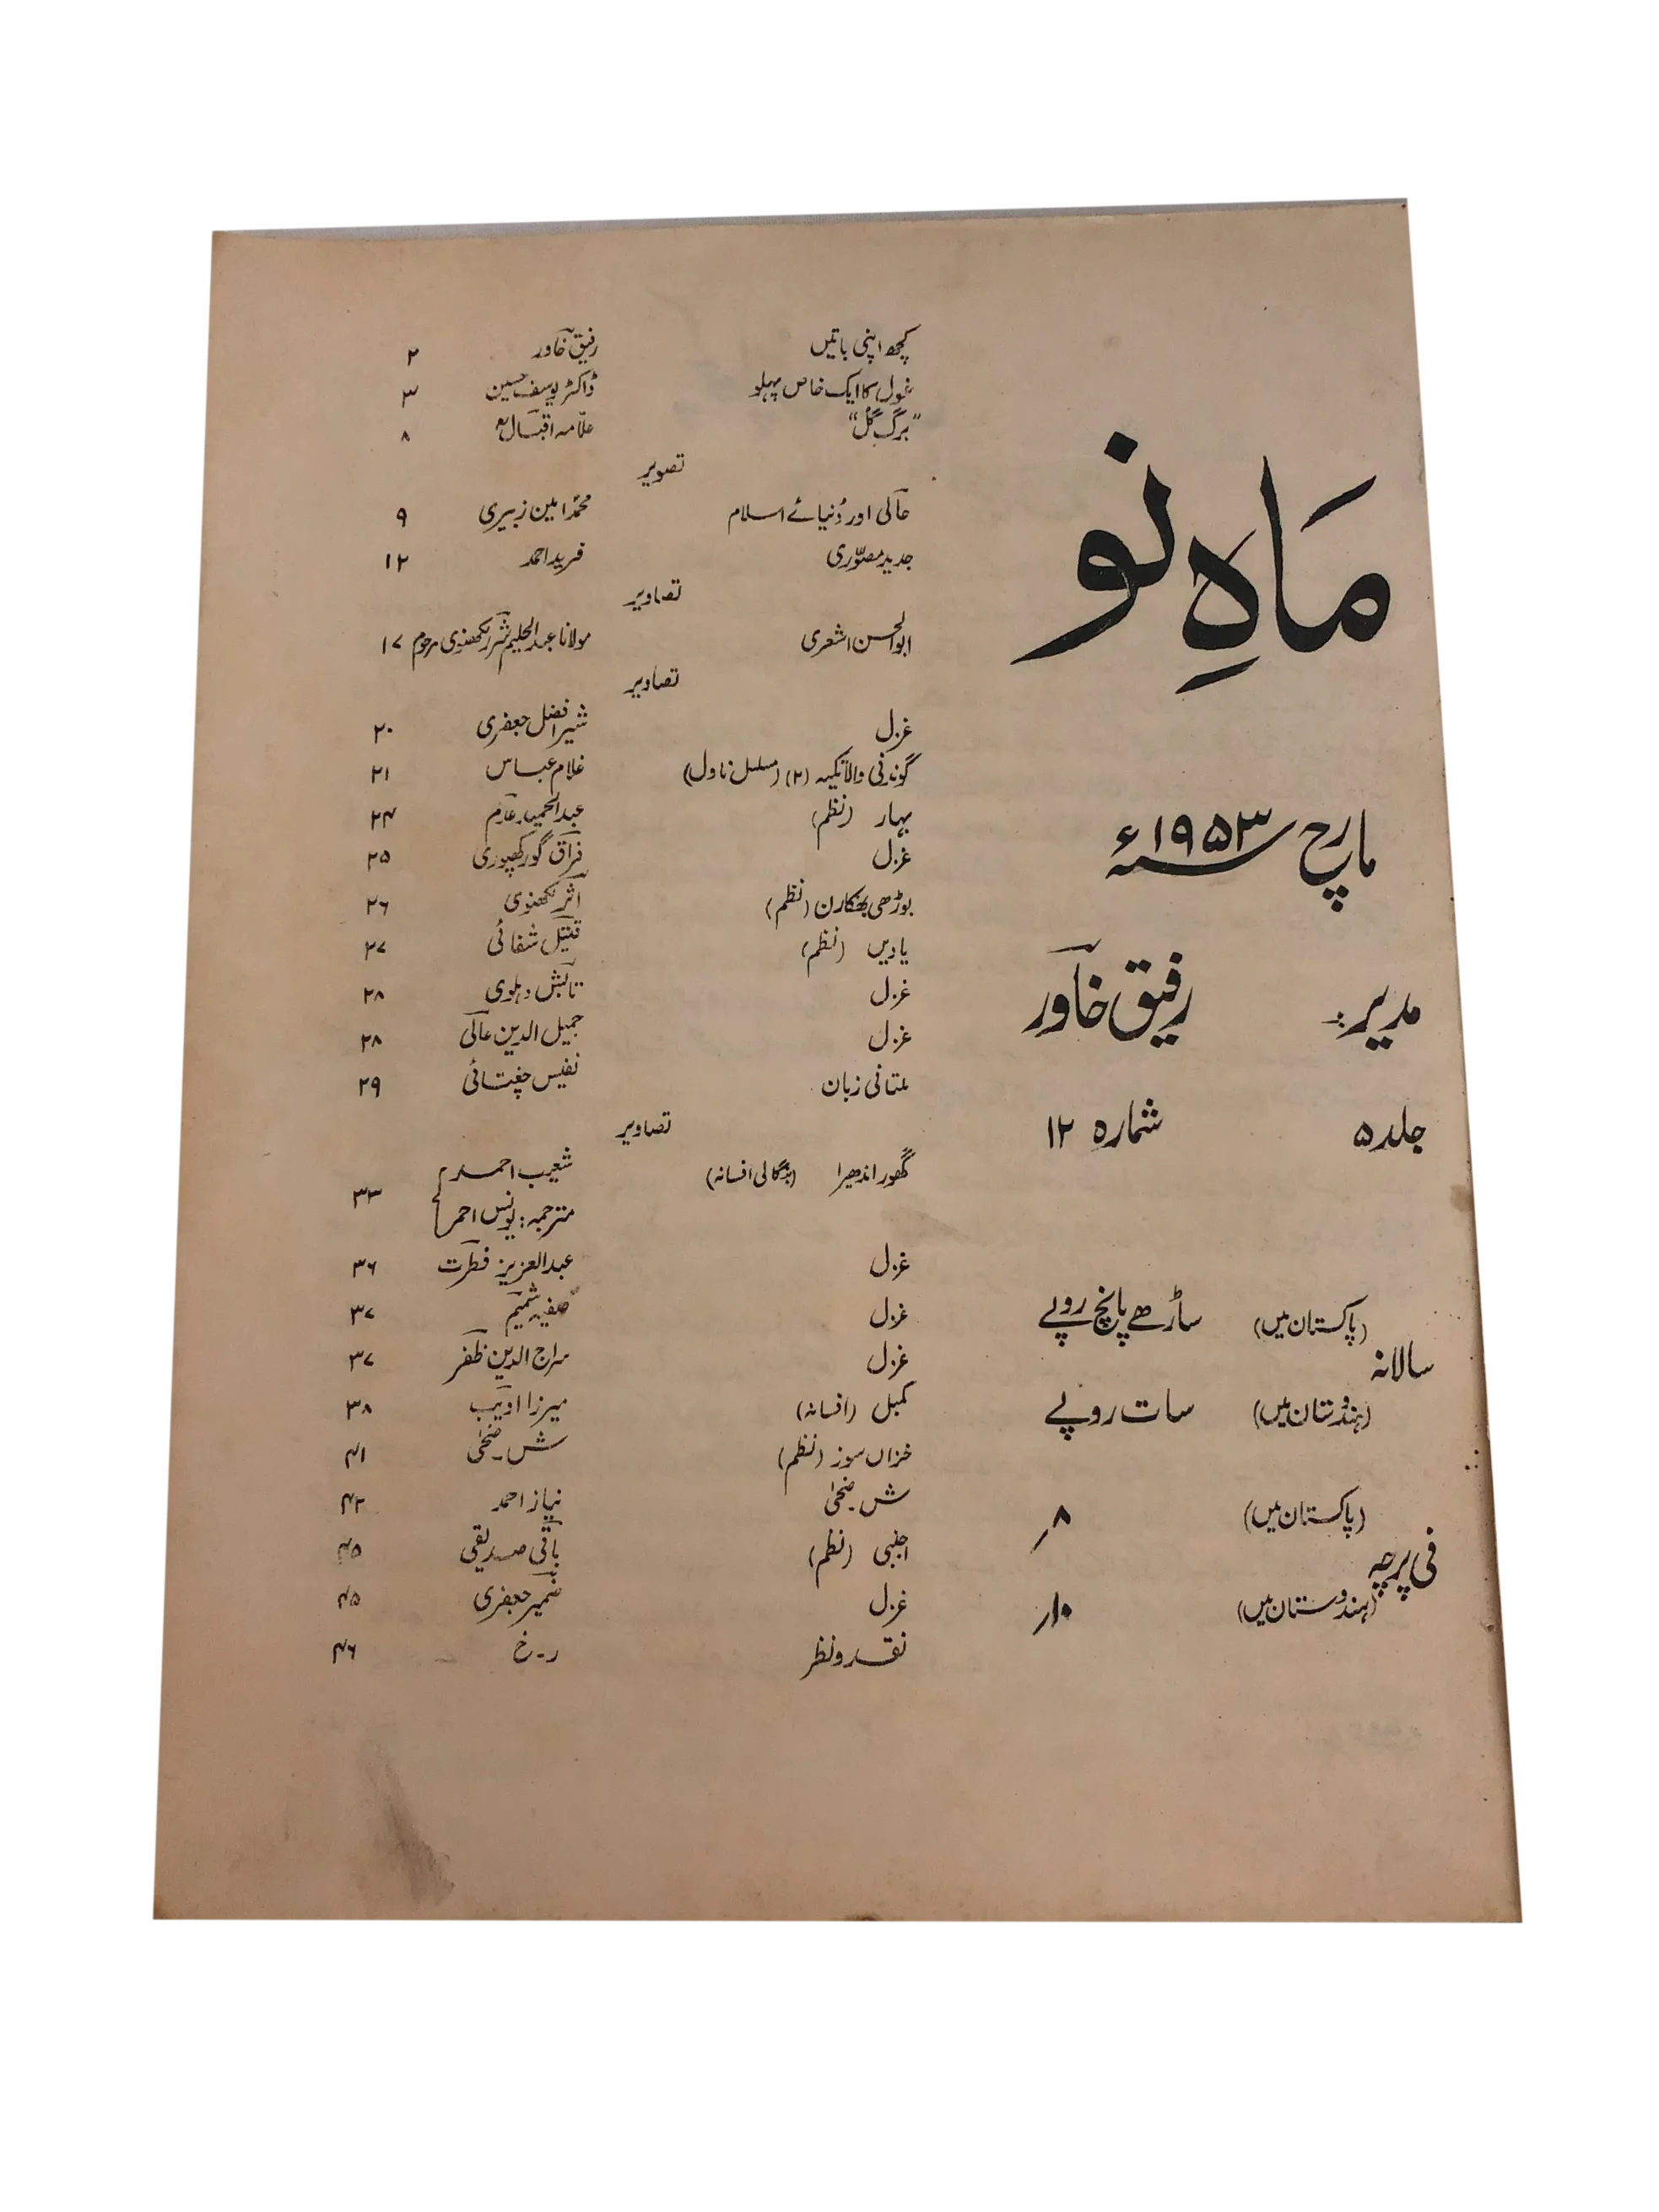 ماہِ نو
مارچ ۱۹۵۳ء
مدیر:۔ رفیق خاور
جلد ۵ شمارہ ۱۲
سالانہ
(پاکستان میں) ساڑھے پانچ روپے
(ہندوستان میں) سات روپے
فی پرچہ
(پاکستان میں) ۸؍
(ہندوستان میں) ۱۰؍
کچھ اپنی باتیں رفیق خاور ۲
غزل کا ایک خاص پہلو ڈاکٹر یوسف حسین ۳
"برگ گل" علامہ اقبالؒ ۸
تصویر
حالی اور دُنیائے اسلام محمد امین زبیری ۹
جدید مصوّری فرید احمد ۱۲
تصاویر
ابوالحسن اشعری مولانا عبدالحلیم شرر لکھنوی مرحوم ۱۷
تصاویر
غزل شیر افضل جعفری ۲۰
گوندنی والا تکیہ (۲) (مسلسل ناول) غلام عباس ۲۱
بہار (نظم) عبدالحمید عدم ۲۴
غزل فراق گورکھپوری ۲۵
بوڑھی بھکارن (نظم) اثر لکھنوی ۲۶
یادیں (نظم) قتیل شفائی ۲۷
غزل تابش دہلوی ۲۸
غزل جمیل الدین عالی ۲۸
ملتانی زبان نفیس چغتائی ۲۹
تصاویر
گھور اندھیرا (بنگالی افسانہ) شعیب احمد
مترجمہ: یونس احمر ۳۳
غزل عبدالعزیز فطرت ۳۶
غزل صفیہ شمیم ۳۷
غزل سراج الدین ظفر ۳۷
کمبل (افسانہ) میرزا ادیب ۳۸
خزاں سوز (نظم) ش۔ ضحیٰ ۴۱
ش۔ ضحیٰ نیاز احمد ۴۲
اجنبی (نظم) باقی صدیقی ۴۵
غزل ضمیر جعفری ۴۵
نقد و نظر ر۔ خ ۴۶